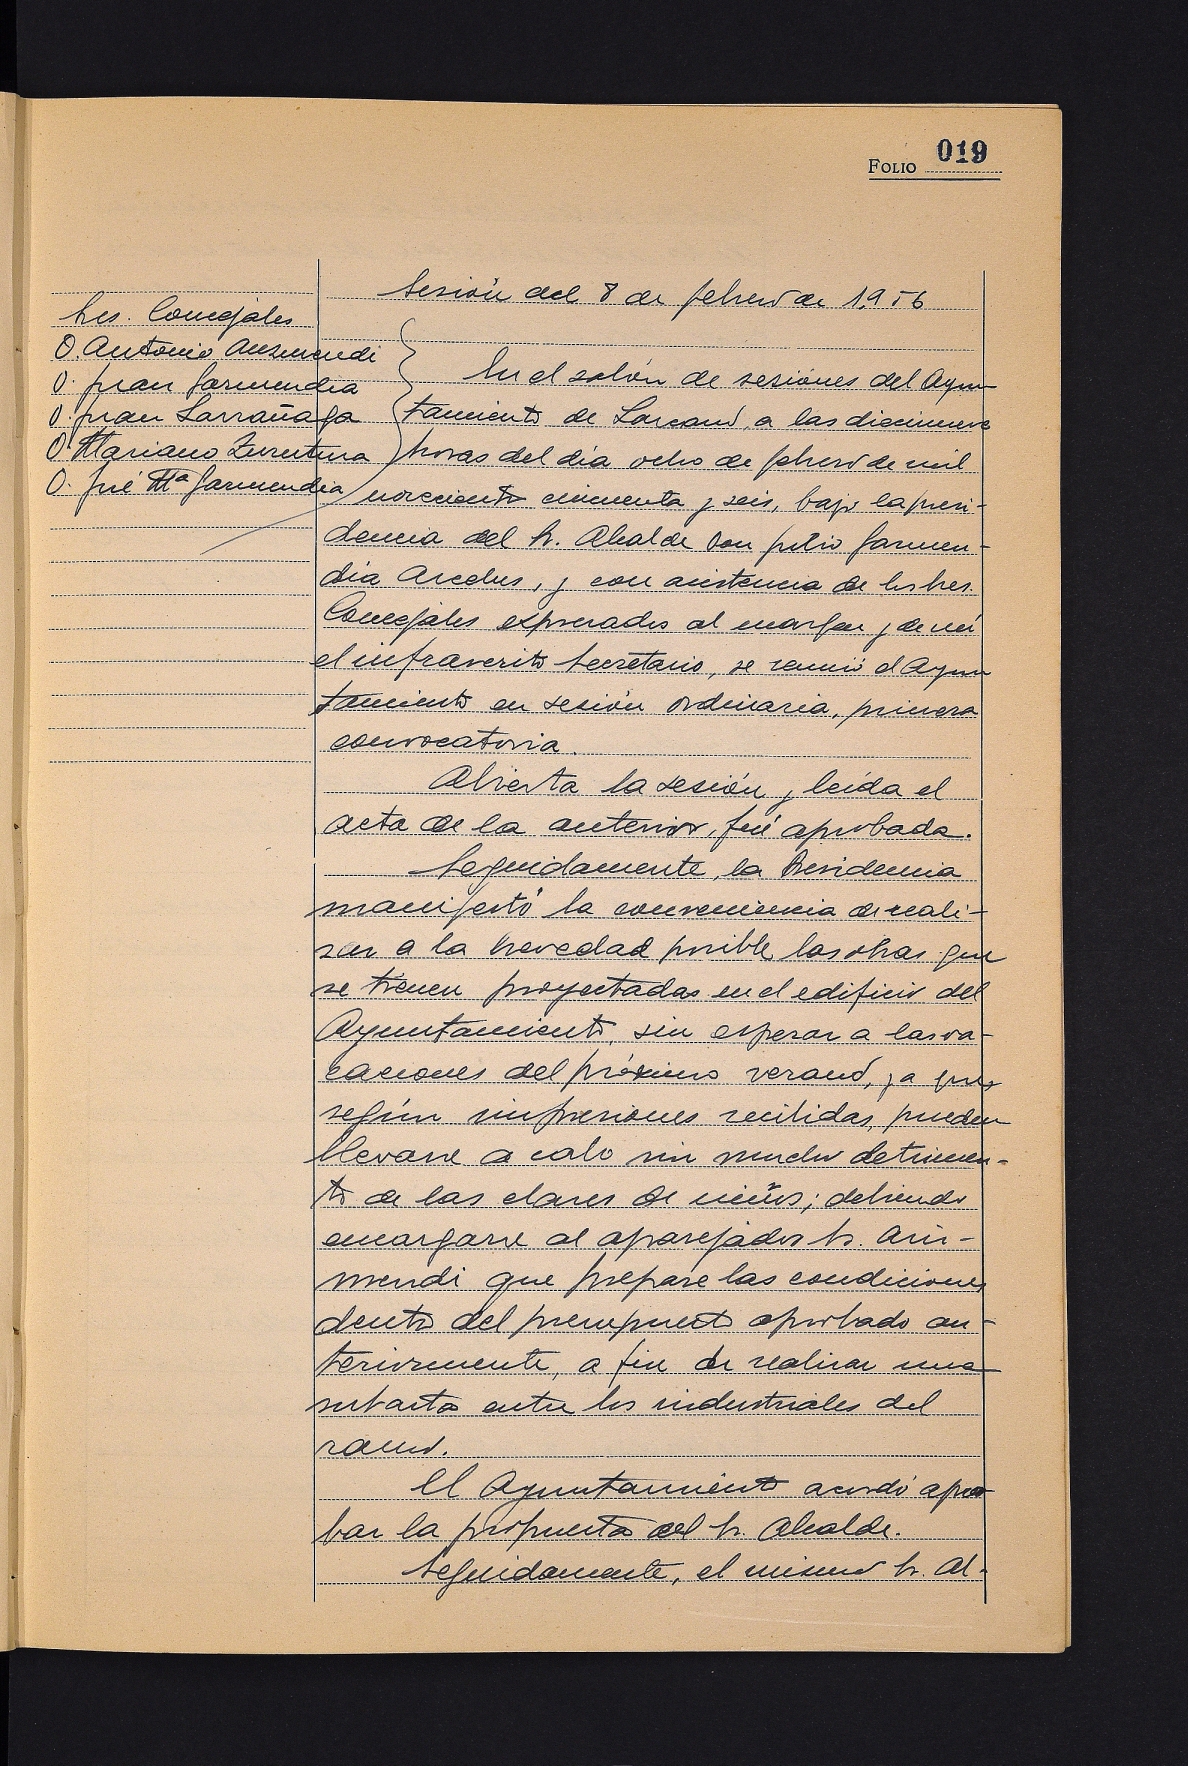 FOLIO 019
Sesión del 8 de febrero de 1,956
Sres. Concejales
D. Antonio Auzmendi
D. Juan Garmendia
D. Juan Larrañaga
D. Mariano Zurutuza
D. José Mª Garmendia
En el salón de sesiónes del Ayun-
tamiento de Lazcano, a las diecinueve
horas del día ocho de febrero de mil
novecientos cincuenta y seis, bajo la presi-
dencia del Sr. Alcalde Don Julio Garmen-
dia Arcelus, y con asistencia de los Sres.
Concejales expresados al margen y de mí
el infrascrito Secretario, se reunió el Ayun
tamiento en sesión ordinaria, primera
convocatoria.
Abierta la sesión y leída el
acta de la anterior, fué aprobada.
Seguidamente, la Presidencia
manifestó la conveniencia de reali-
zar a la brevedad posible las obras que
se tienen proyectadas en el edificio del
Ayuntamiento, sin esperar a las va-
caciones del próximo verano, ya que,
según impresiones recibidas, pueden
llevarse a cabo sin mucho detrimen-
to de las clases de niños; debiendo
encargarse al aparejador Sr. Aris-
mendi que prepare las condiciones
dentro del presupuesto aprobado an-
teriormente, a fin de realizar una
subasta entre los industriales del
ramo.
El Ayuntamiento acordó apro
bar la propuesta del Sr. Alcalde.
Seguidamente, el mismo Sr. Al-